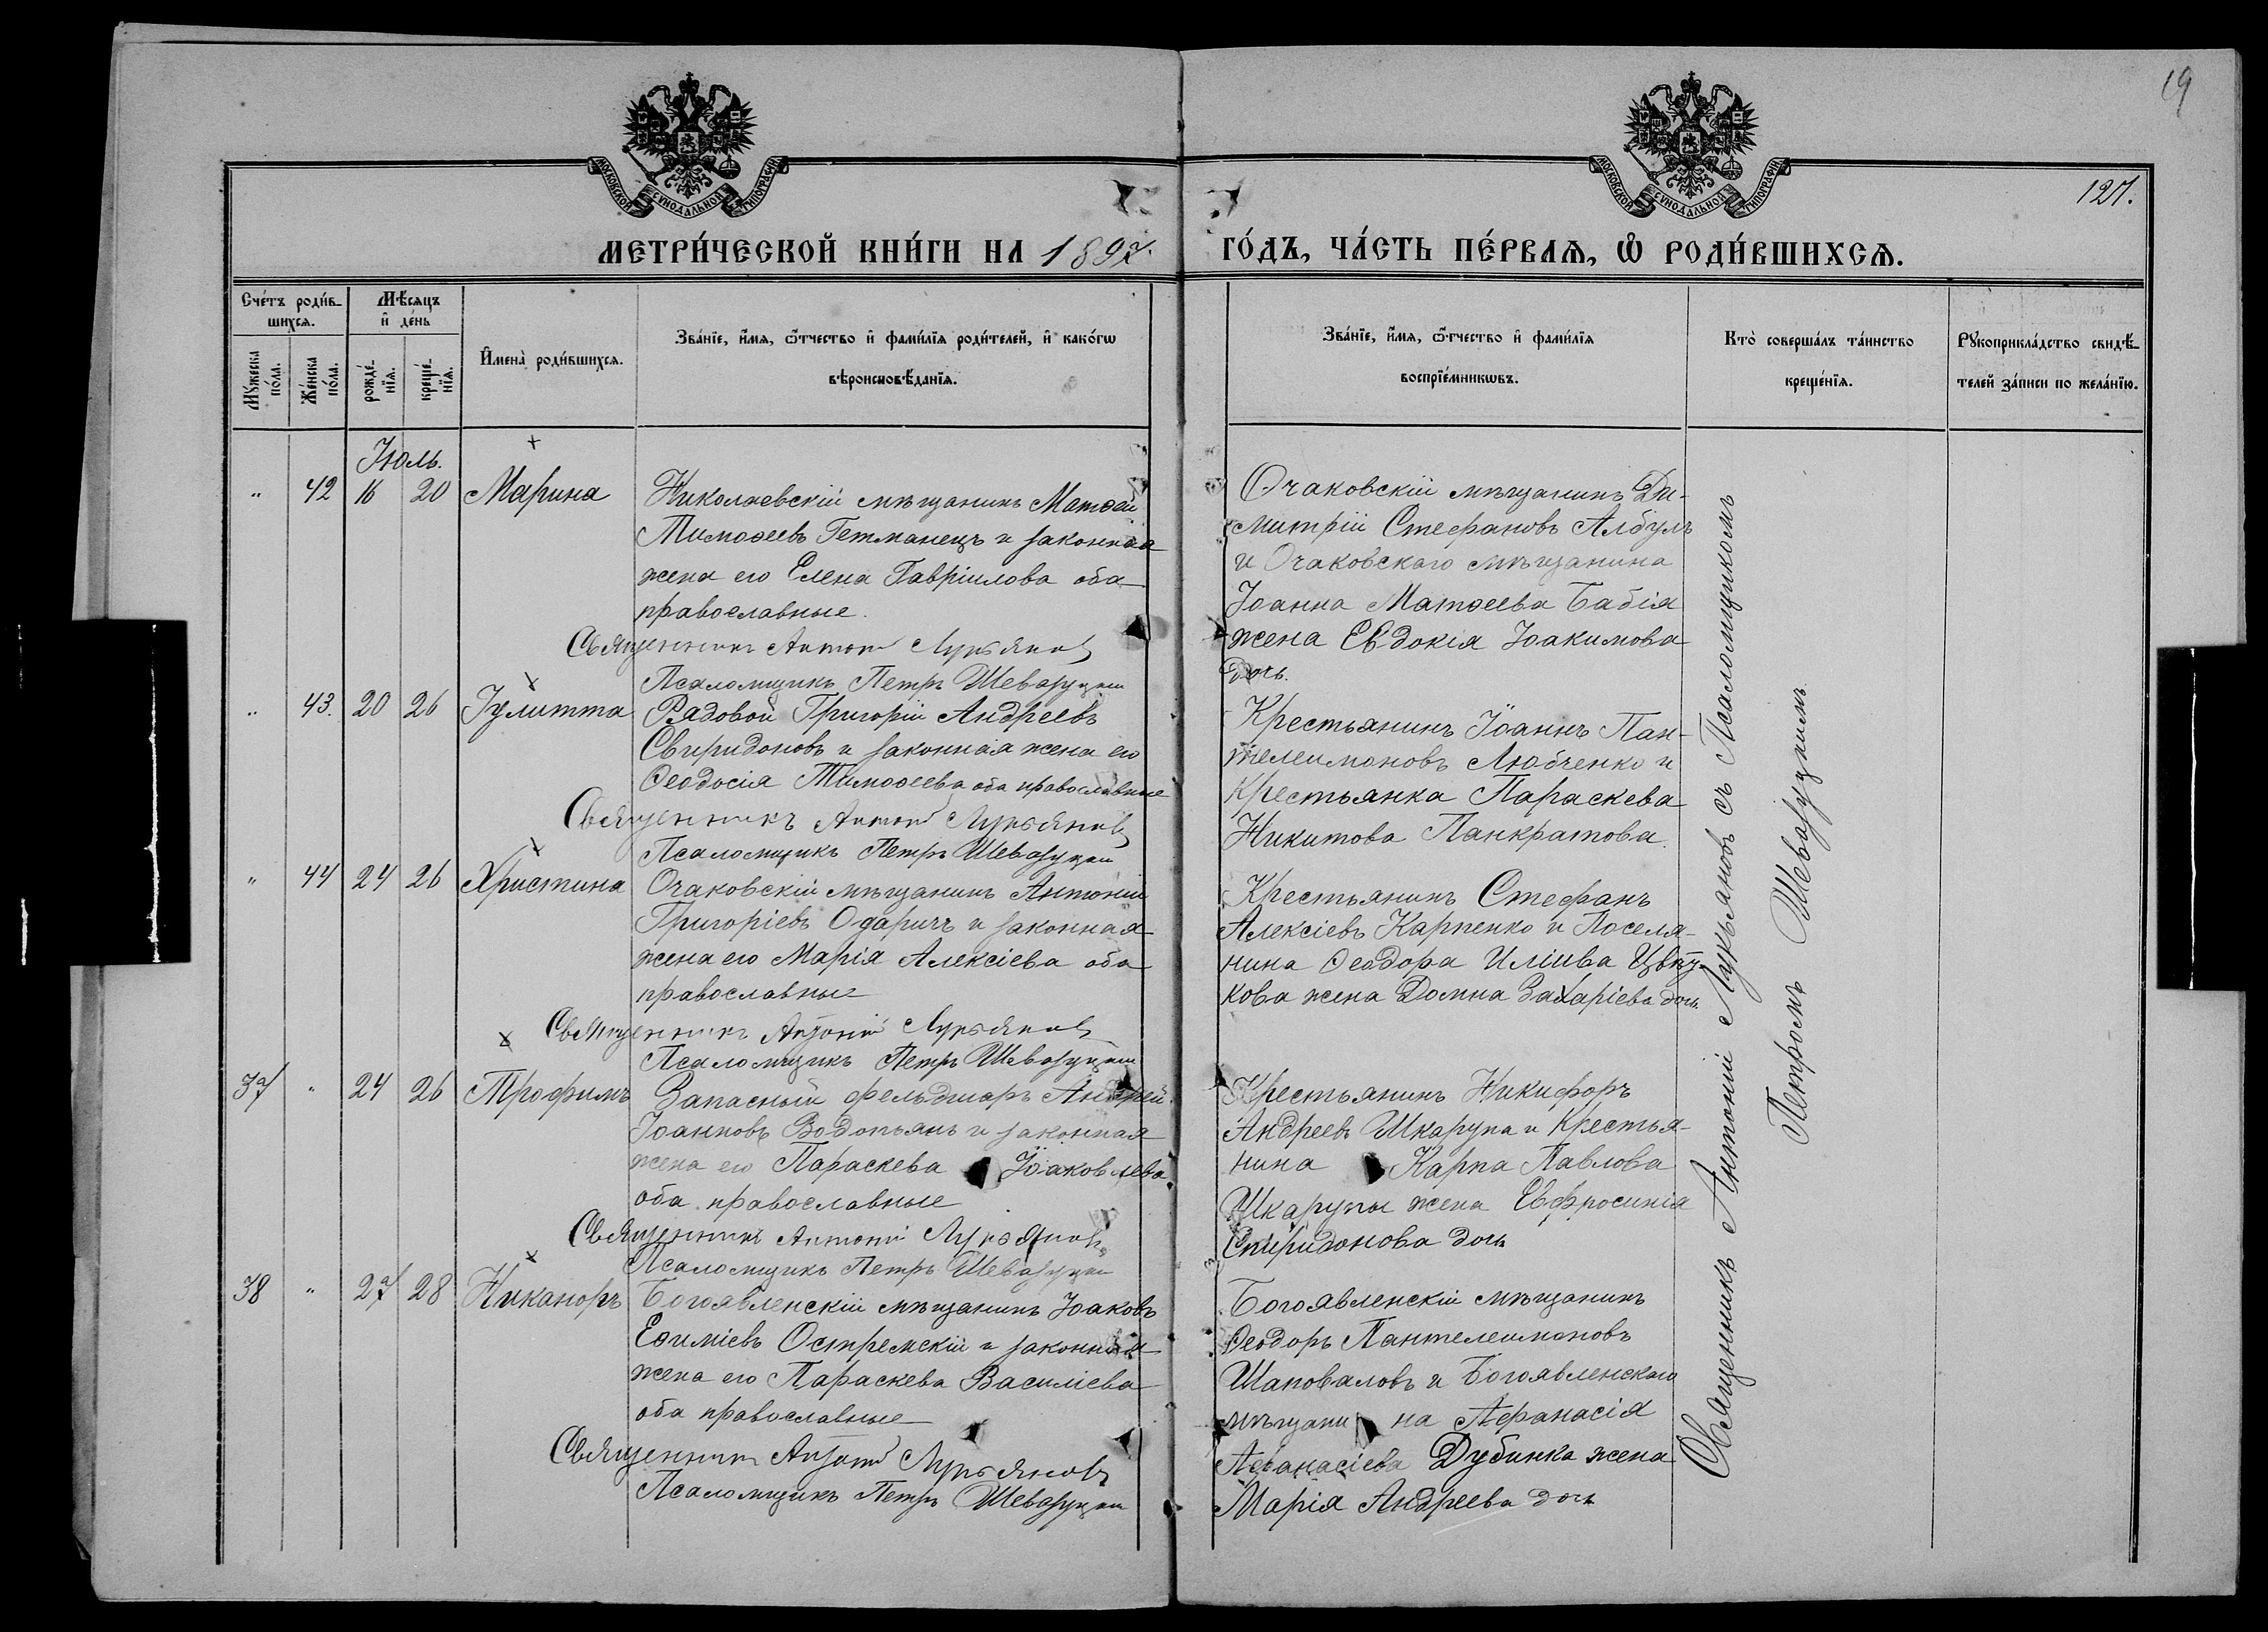 19
МОСКОВСКОЙ СѴНОДАЛЬНОЙ ТИПОГРАФИИ
МОСКОВСКОЙ СѴНОДАЛЬНОЙ ТИПОГРАФИИ
127.
МЕТРИ́ЧЕСКОЙ КНИ́ГИ НА 1892 ГО́ДЪ, ЧА́СТЬ ПЕ́РВАѦ, Ѡ҆ РОДИ́ВШИХСѦ.
Сче́тъ роди́в-
шихсѧ.
Мꙋ́жеска по́ла.
Же́нска по́ла.
Мѣ́сѧцъ
и҆ де́нь
рожде́-
нїѧ.
креще́-
нїѧ.
И҆мена̀ роди́вшихсѧ.
Зва́нїе, и҆́мѧ, ѻ҆́тчество и҆ фами́лїѧ роди́телей, и҆ како́гѡ
вѣроисповѣ́данїѧ.
Зва́нїе, и҆́мѧ, ѻ҆́тчество и҆ фами́лїѧ
воспрїе́мникѡвъ.
Кто̀ соверша́лъ та́инство
креще́нїѧ.
Рꙋкоприкла́дство свидѣ́-
телей за́писи по жела́нїю.
Іюль.
" 42 16 20 Марина
Николаевскій мѣщанинъ Матѳей
Тимоѳеевъ Гетманецъ и законная
жена его Елена Гавріилова оба
православные.
Священникъ Антоній Лукьяновъ
Псаломщикъ Петръ Шевазуцкій
Очаковскій мѣщанинъ Ди-
митрій Стефановъ Албулъ
и Очаковскаго мѣщанина
Іоанна Матѳеева Бабія
жена Евдокія Іоакимова
дочь.
" 43. 20 26 Іулитта
Рядовой Григорій Андреевъ
Свиридоновъ и законная жена его
Ѳеодосія Тимоѳеева оба православные
Священникъ Антоній Лукьяновъ
Псаломщикъ Петръ Шевазуцкій
Крестьянинъ Іоаннъ Пан-
телеимоновъ Любченко и
Крестьянка Параскева
Никитова Панкратова.
" 44 24 26 Христина
Очаковскій мѣщанинъ Антоній
Григоріевъ Одаричъ и законная
жена его Марія Алексіева оба
православные
Священникъ Антоній Лукьяновъ
Псаломщикъ Петръ Шевазуцкій
Крестьянинъ Стефанъ
Алексіевъ Карпенко и Поселя-
нина Ѳеодора Иліива Цвѣт-
кова жена Домна Захаріева дочь
37 " 24 26 Трофимъ
Запасный фельдшеръ Андрей
Іоанновъ Водопьянъ и законная
жена его Параскева Іоаковлева
оба православные
Священникъ Антоній Лукьяновъ
Псаломщикъ Петръ Шевазуцкій
Крестьянинъ Никифоръ
Андреевъ Шкарупа и Крестья-
нина Карпа Павлова
Шкарупы жена Евфросинія
Спиридонова дочь
38 " 27 28 Никаноръ
Богоявленскій мѣщанинъ Іоаковъ
Еѳиміевъ Остремскій и законная
жена его Параскева Василіева
оба православные
Священникъ Антоній Лукьяновъ
Псаломщикъ Петръ Шевазуцкій
Богоявленскій мѣщанинъ
Ѳеодоръ Пантелеимоновъ
Шаповаловъ и Богоявленскаго
мѣщани на Аѳанасія
Аѳанасіева Дубинка жена
Марія Андреева дочь
Священникъ Антоній Лукьяновъ съ Псаломщикомъ
Петромъ Шевазуцкимъ